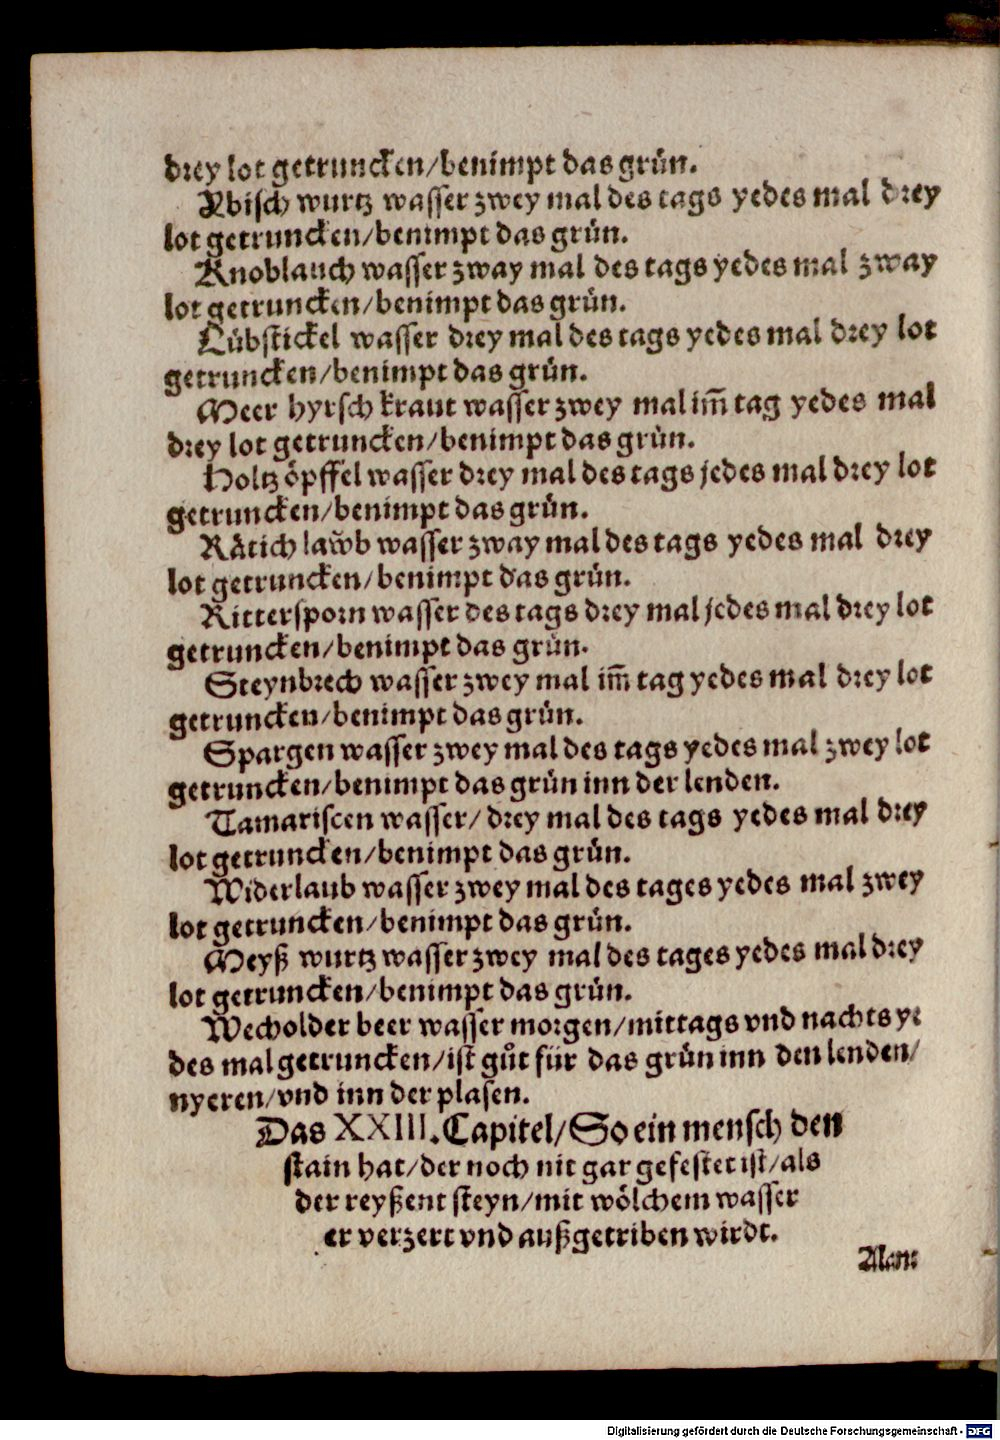 drey lot getruncken/benimpt das grün.
Ybisch wurtz wasser zwey mal des tags yedes mal drey
lot getruncken/benimpt das grün.
Knoblauch wasser zway mal des tags yedes mal zway
lot getruncken/benimpt das grün.
Lübstickel wasser drey mal des tags yedes mal drey lot
getruncken/benimpt das grün.
Meer hyrsch kraut wasser zwey mal im̃ tag yedes mal
drey lot getruncken/benimpt das grün.
Holtz öpffel wasser drey mal des tags jedes mal drey lot
getruncken/benimpt das grün.
Rätich lawb wasser zway mal des tags yedes mal drey
lot getruncken/benimpt das grün.
Rittersporn wasser des tags drey mal jedes mal drey lot
getruncken/benimpt das grün.
Steynbrech wasser zwey mal im̃ tag yedes mal drey lot
getruncken/benimpt das grün.
Spargen wasser zwey mal des tags yedes mal zwey lot
getruncken/benimpt das grün inn der lenden.
Tamariscen wasser/ drey mal des tags yedes mal drey
lot getruncken/benimpt das grün.
Widerlaub wasser zwey mal des tages yedes mal zwey
lot getruncken/benimpt das grün.
Meyß wurtz wasser zwey mal des tages yedes mal drey
lot getruncken/benimpt das grün.
Wecholder beer wasser morgen/mittags vnd nachts ye
des mal getruncken/ist gůt für das grün inn den lenden/
nyeren/vnd inn der plasen.
Das XXIII.Capitel/So ein mensch den
stain hat/der noch nit gar gefestet ist/als
der reyßent steyn/mit wölchem wasser
er verzert vnd außgetriben wirdt.
Man:
Digitalisierung gefördert durch die Deutsche Forschungsgemeinschaft - DFG